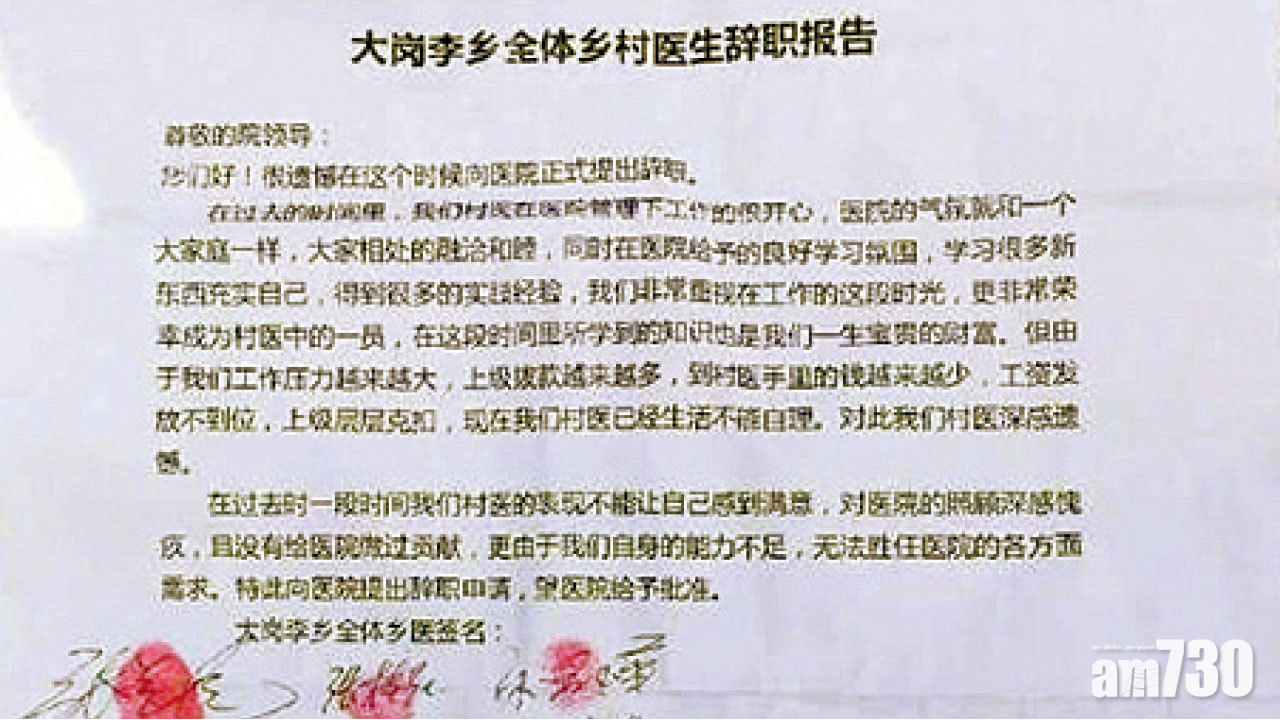 大岗李乡全体乡村医生辞职报告
尊敬的院领导：
您们好！很遗憾在这个时候向医院正式提出辞职。
在过去的时间里，我们村医在医院管理下工作的很开心，医院的气氛就和一个
大家庭一样，大家相处的融洽和睦，同时在医院给予的良好学习氛围，学习很多新
东西充实自己，得到很多的实践经验，我们非常重视在工作的这段时光，更非常荣
幸成为村医中的一员，在这段时间里所学到的知识也是我们一生宝贵的财富。但由
于我们工作压力越来越大，上级拨款越来越多，到村医手里的钱越来越少，工资发
放不到位，上级层层克扣，现在我们村医已经生活不能自理。对此我们村医深感遗
憾。
在过去时一段时间我们村医的表现不能让自己感到满意，对医院的照顾深感愧
疚，且没有给医院做过贡献，更由于我们自身的能力不足，无法胜任医院的各方面
需求。特此向医院提出辞职申请，望医院给予批准。
大岗李乡全体乡医签名：
am730